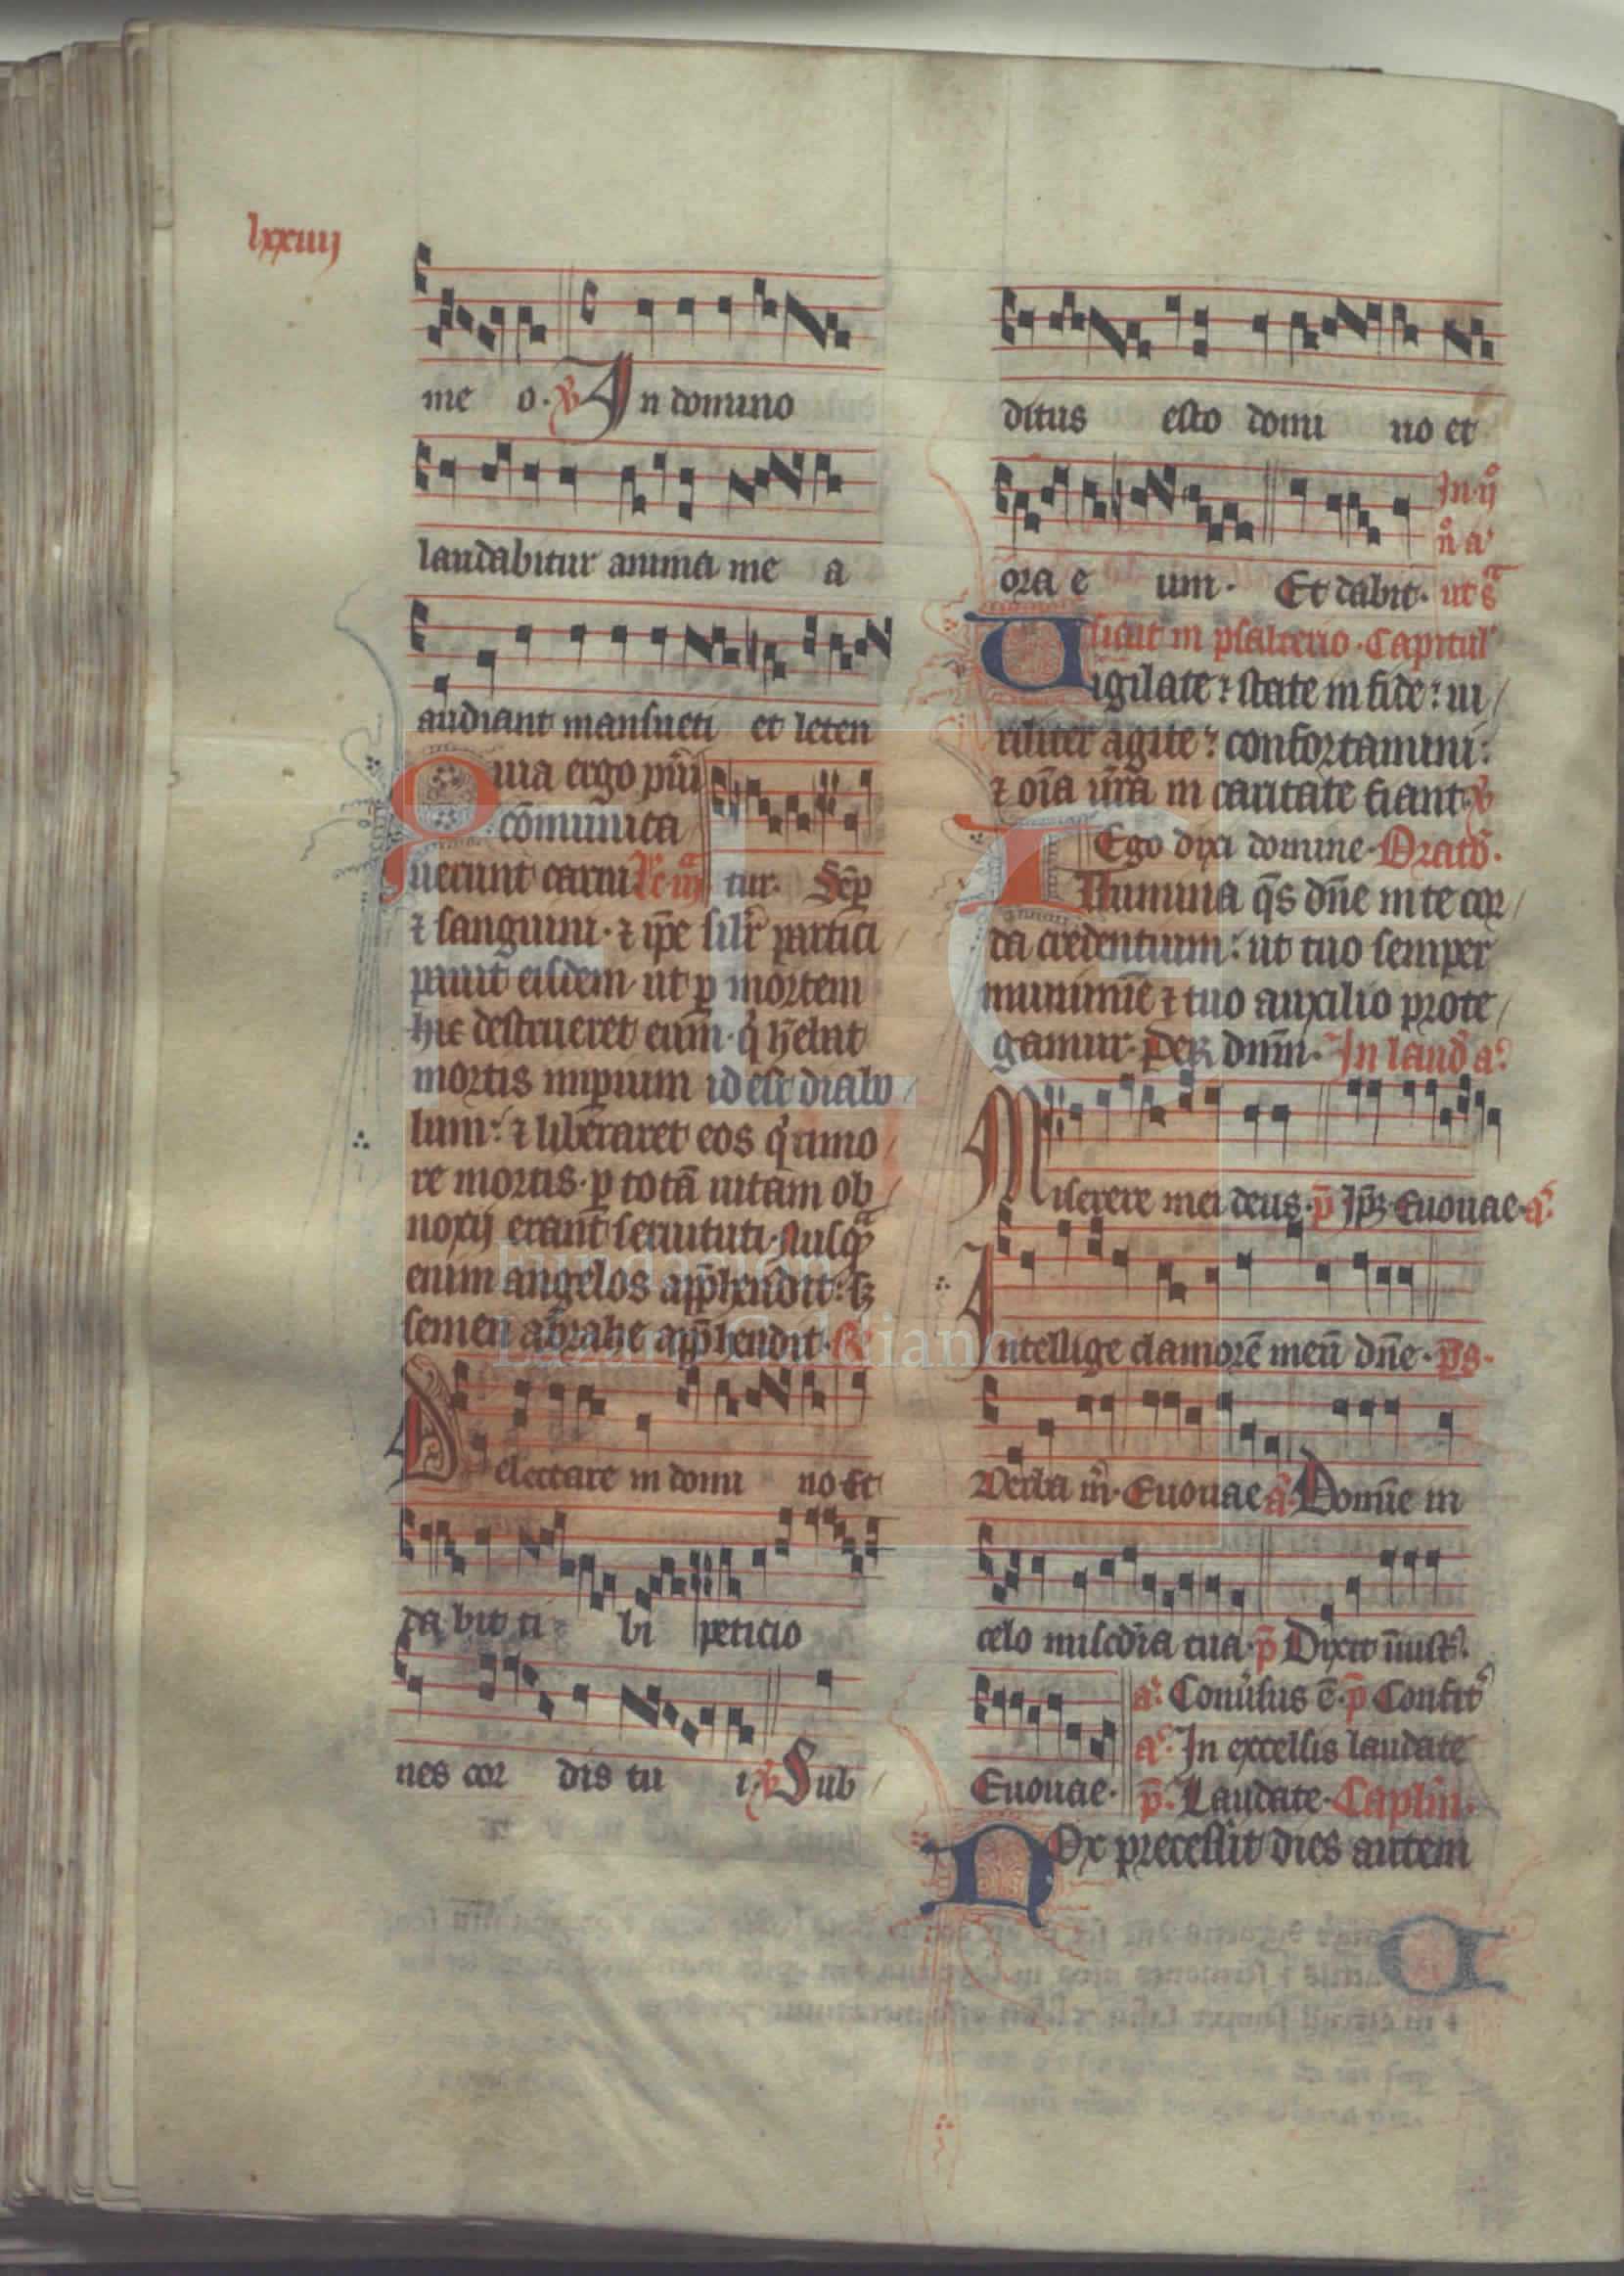 lxxiiij
me o. ℣ In domino
laudabitur anima me a
audiant mansueti et leten
Quia ergo pu̅i
co̅munica
tur. Se̅p
uerunt carni Lc̅. iij
⁊ sanguini. ⁊ ip̅e sil̅r partici
pauit eisdem ut ꝑ mortem
hic destrueret eum. q̇ h̅ebat
mortis imperium id est diabo
lum: ⁊ liberaret eos q̇ timo
re mortis. ꝑ tota̅ uitam ob
noxij erant seruituti. Nusqͣ
enim angelos app̅hendit: sꝫ
semen abrahe app̅hendit. ℟
Delectare in domi no Et
da bit ti bi peticio
nes cor dis tu i. ℣ Sub
ditus esto domi no et
In ij
n̊ a͛
ora e um. Et dabit. ut sͣ
sicut in psalterio. Capitul͛
Uigilate ⁊ state in fide: ui
riliter agite ⁊ confortamini:
⁊ oi̅a ur̅a in caritate fiant. ℣
Ego dixi domine. Orato̅.
Illumina q̅s dn̅e in te cor
da credentium: ut tuo semper
munimi̅e ⁊ tuo auxilio prote
gamur. Per dnm̅. In laud̅ a͛.
Miserere mei deus. p̅ Ip̅ꝫ. Euouae. a͛.
Intellige clamore̅ meu̅ dn̅e. p̅s.
Verba m̅. Euouae a͛. Domi̅e in
celo misc̅dia tua. p̅ Dixit iniust͛.
a͛. Conu͛sus e̅. p̅ Confit͛
a͛. In excelsis laudate
Euouae. p̅. Laudate. Caplm̅.
Nox precessit dies autem